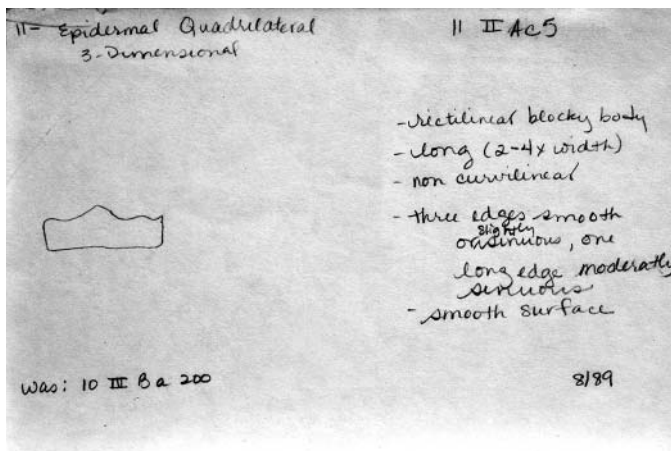 11- Epidermal Quadrilateral
3-Dimensional
11 II Ac5
- rectilineal blocky body
- long (2-4x width)
- non curvilineal
- three edges smooth
slightly
or sinuous, one
long edge moderatly
sinuous
- smooth surface
was: 10 III B a 200
8/89